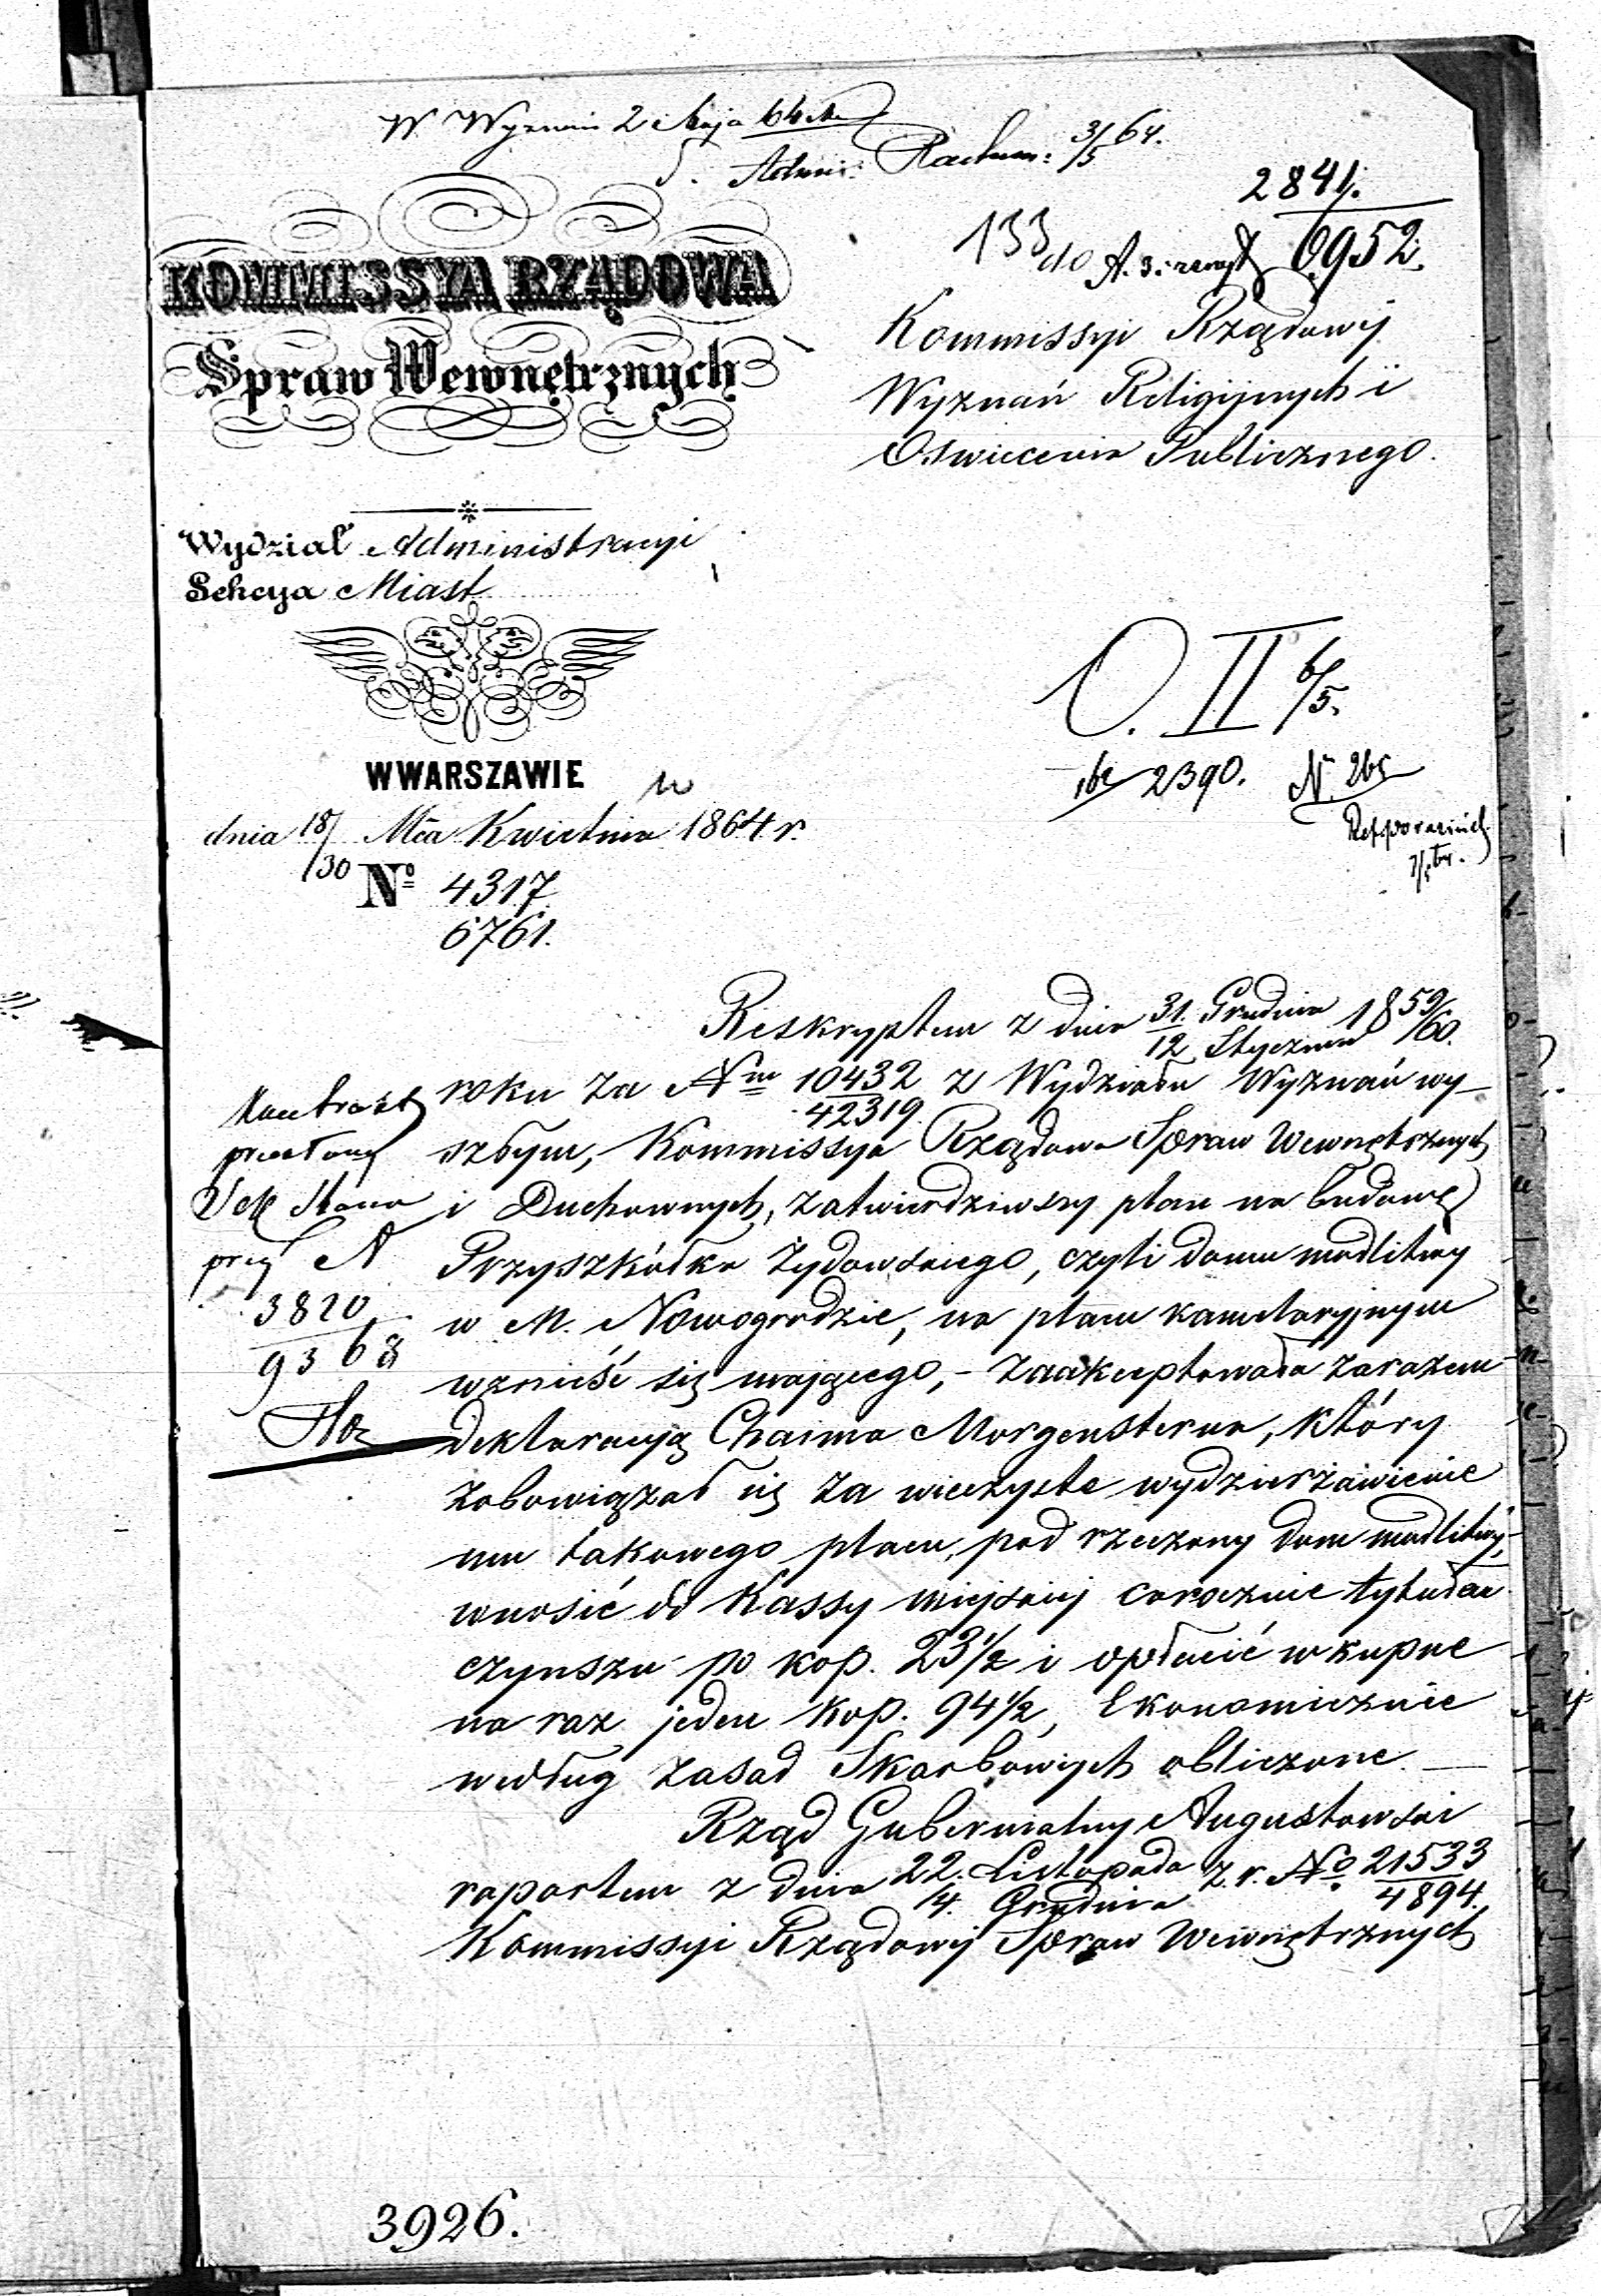 W Wyznań 2 Maja 64
S. Admin: Rachun: 3/5 64.
2841.
133 do A. 3. 6952.
KOMMISSYA RZĄDOWA
Spraw Wewnętrznych
Kommissyi Rządowéj
Wyznań Religijnych i
Oswiecenia Publicznego.
Wydział Administracyi
Sekcya Miast
O. II 6/5.
2390. N. 265
W WARSZAWIE
dnia 18/30 Mca Kwietnia 1864 r.
No 4317
6761.
Reskryptem z dnia 31. Grudnia / 12 Stycznia 1859/60.
roku za Nm 10432 / 42319 z Wydziału Wyznań wy-
szłym, Kommissya Rządowa Spraw Wewnętrznych
i Duchownych, zatwierdziwszy plan na budowę
Przyszkółka Żydowskiego, czyli domu modlitwy
w M. Nowogrodzie, na placu kamelaryjnym
wznieść się mającego, - zaakceptowała zarazem
deklaracyą Chaima Morgensterna, który
zobowiązał się za wieczyste wydzierżawienie
mu takowego placu, pod rzeczony dom modlitwy,
wnosić do Kassy miejskiej corocznie tytułem
czynszu po kop. 23½ i opłacić wkupne
na raz jeden kop. 94½, Ekonomicznie
według zasad Skarbowych obliczone.
Rząd Gubernialny Augustowski
raportem z dnia 22. Listopada / 4. Grudnia z. r. No 21533 / 4894.
Kommissyi Rządowéj Spraw Wewnętrznych
Kontrakt
przesłany
przy N
3820
9368
3926.